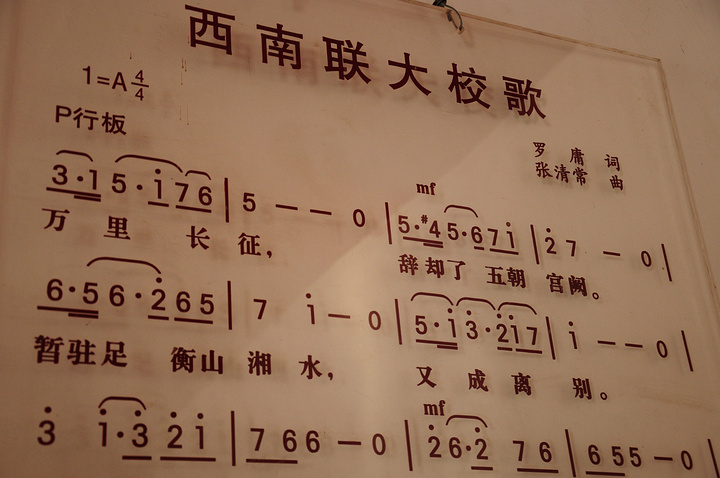 西南联大校歌
1=A 4/4
P行板
罗庸 词
张清常 曲
mf
3·1 5·i 7 6 | 5 — — 0 | 5·#4 5·6 7 i | 2 7 — 0 |
万里 长征， 辞却了 五朝 宫阙。
6·5 6·2 6 5 | 7 i — 0 | 5·i 3·2 i 7 | i — — 0 |
暂驻足 衡山 湘 水， 又 成 离 别。
mf
3 i·3 2 i | 7 6 6 — 0 | 2 6·2 7 6 | 6 5 5 — 0 |